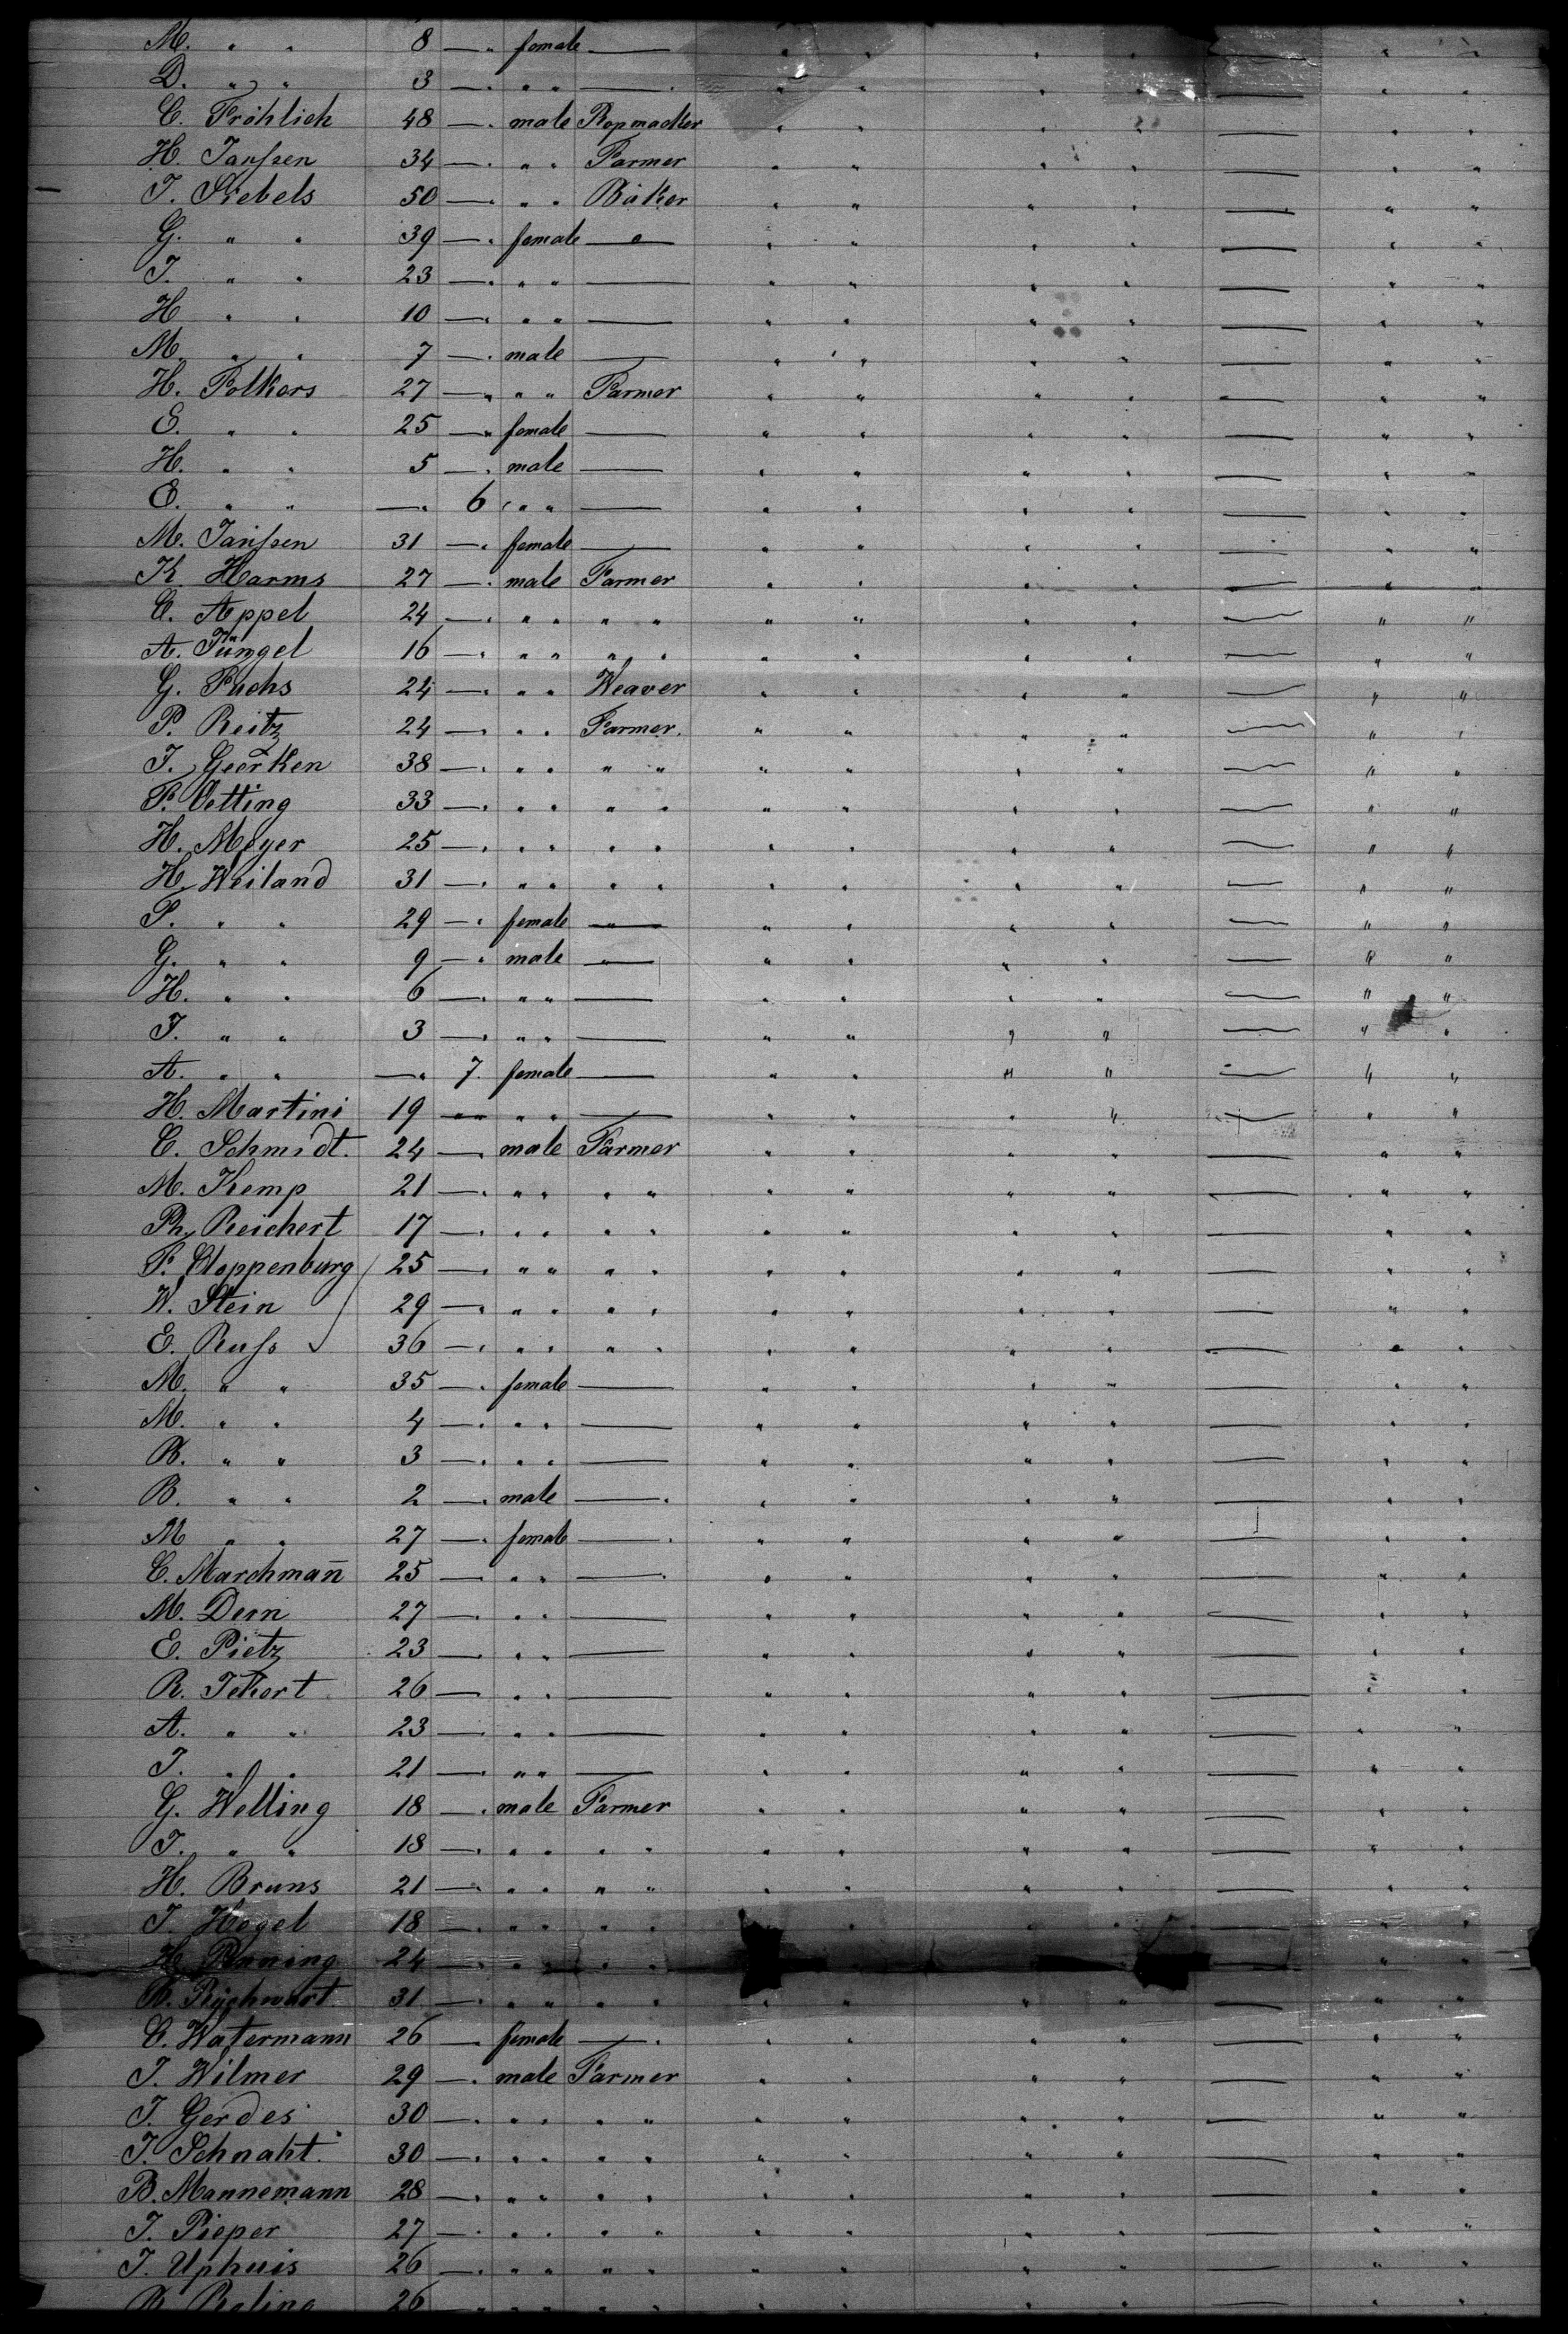 M. " " 8 — " female —
D. " " 3 — " " " —
C. Fröhlich 48 — " male Ropmacker " " " " — " "
H. Janssen 34 — " " " Farmer " " " " — " "
J. Siebels 50 — " " " Bäker " " " " — " "
G. " " 39 — " female — " " " " — " "
J. " " 23 — " " " — " " " " — " "
H " " 10 — " " " — " " " " — " "
M. " " 7 — " male — " " " " — " "
H. Folkers 27 — " " " Farmer " " " " — " "
E. " " 25 — " female — " " " " — " "
H. " " 5 — " male — " " " " — " "
E. " " — " 6 " " — " " " " — " "
M. Janssen 31 — " female — " " " " — " "
K. Harms 27 — " male Farmer " " " " — " "
C. Appel 24 — " " " " " " " " " — " "
A. Jüngel 16 — " " " " " " " " " — " "
G. Fuchs 24 — " " " Weaver " " " " — " "
P. Reitz 24 — " " " Farmer. " " " " — " "
J. Geerken 38 — " " " " " " " " " — " "
F. Oetting 33 — " " " " " " " " " — " "
H. Meyer 25 — " " " " " " " " " — " "
H. Weiland 31 — " " " " " " " " " — " "
P. " " 29 — " female — " " " " — " "
G. " " 9 — " male — " " " " — " "
H. " " 6 — " " " — " " " " — " "
J. " " 3 — " " " — " " " " — " "
A. " " — " 7. female — " " " " — " "
H. Martini 19 — " " — " " " " — " "
C. Schmidt. 24 — " male Farmer " " " " — " "
M. Kemp 21 — " " " " " " " " " — " "
Ph. Reichert 17 — " " " " " " " " " — " "
F. Cloppenburg 25 — " " " " " " " " " — " "
W. Stein 29 — " " " " " " " " " — " "
E. Russ 36 — " " " " " " " " " — " "
M. " " 35 — " female — " " " " — " "
M. " " 4 — " " " — " " " " — " "
B. " " 3 — " " " — " " " " — " "
B. " " 2 — " male — " " " " — " "
M " " 27 — " female — " " " " — " "
C. Marchman̄ 25 — " " — " " " " — " "
M. Dern 27 — " " " — " " " " — " "
E. Pietz 23 — " " " — " " " " — " "
R. Ickert 26 — " " — " " " " — " "
A. " " 23 — " " — " " " " — " "
J. " " 21 — " " " — " " " " — " "
G. Welling 18 — " male Farmer " " " " — " "
J. " " 18 — " " " " " " " " " — " "
H. Bruns 21 — " " " " " " " " " — " "
J. Hegel 18 — " " " " " " " — " "
H. 24 — " " " " — " "
31 — " " " " " " " " " — " "
C. Watermann 26 — female — " " " " — " "
J. Wilmer 29 — " male Farmer " " " " — " "
J. Gerdes 30 — " " " " " " " " " — " "
J. Schnaht. 30 — " " " " " " " " " — " "
B. Mannemann 28 — " " " " " " " " " — " "
J. Pieper 27 — " " " " " " " " " — " "
J. Uphuis 26 — " " " " " " " " " — " "
26 — " " " " " " " " " — " "